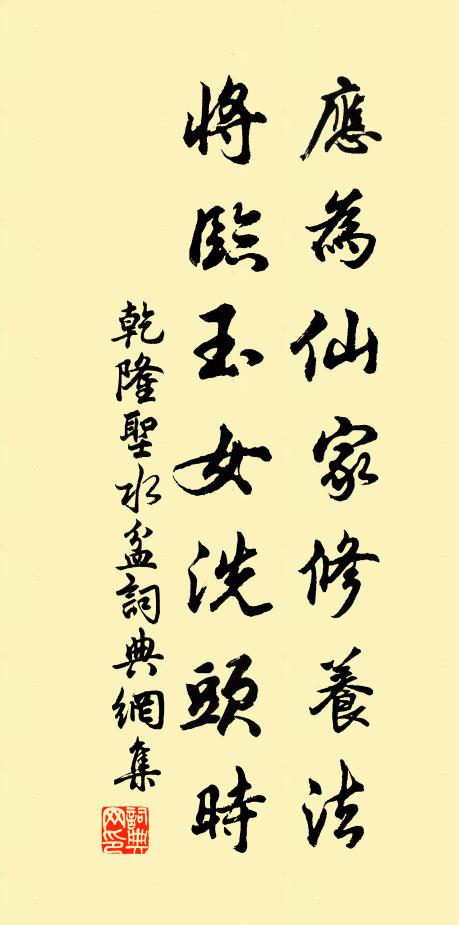 應為仙家修養法
將臨玉女洗頭時
乾隆聖水盆詞典網集
詞典网印